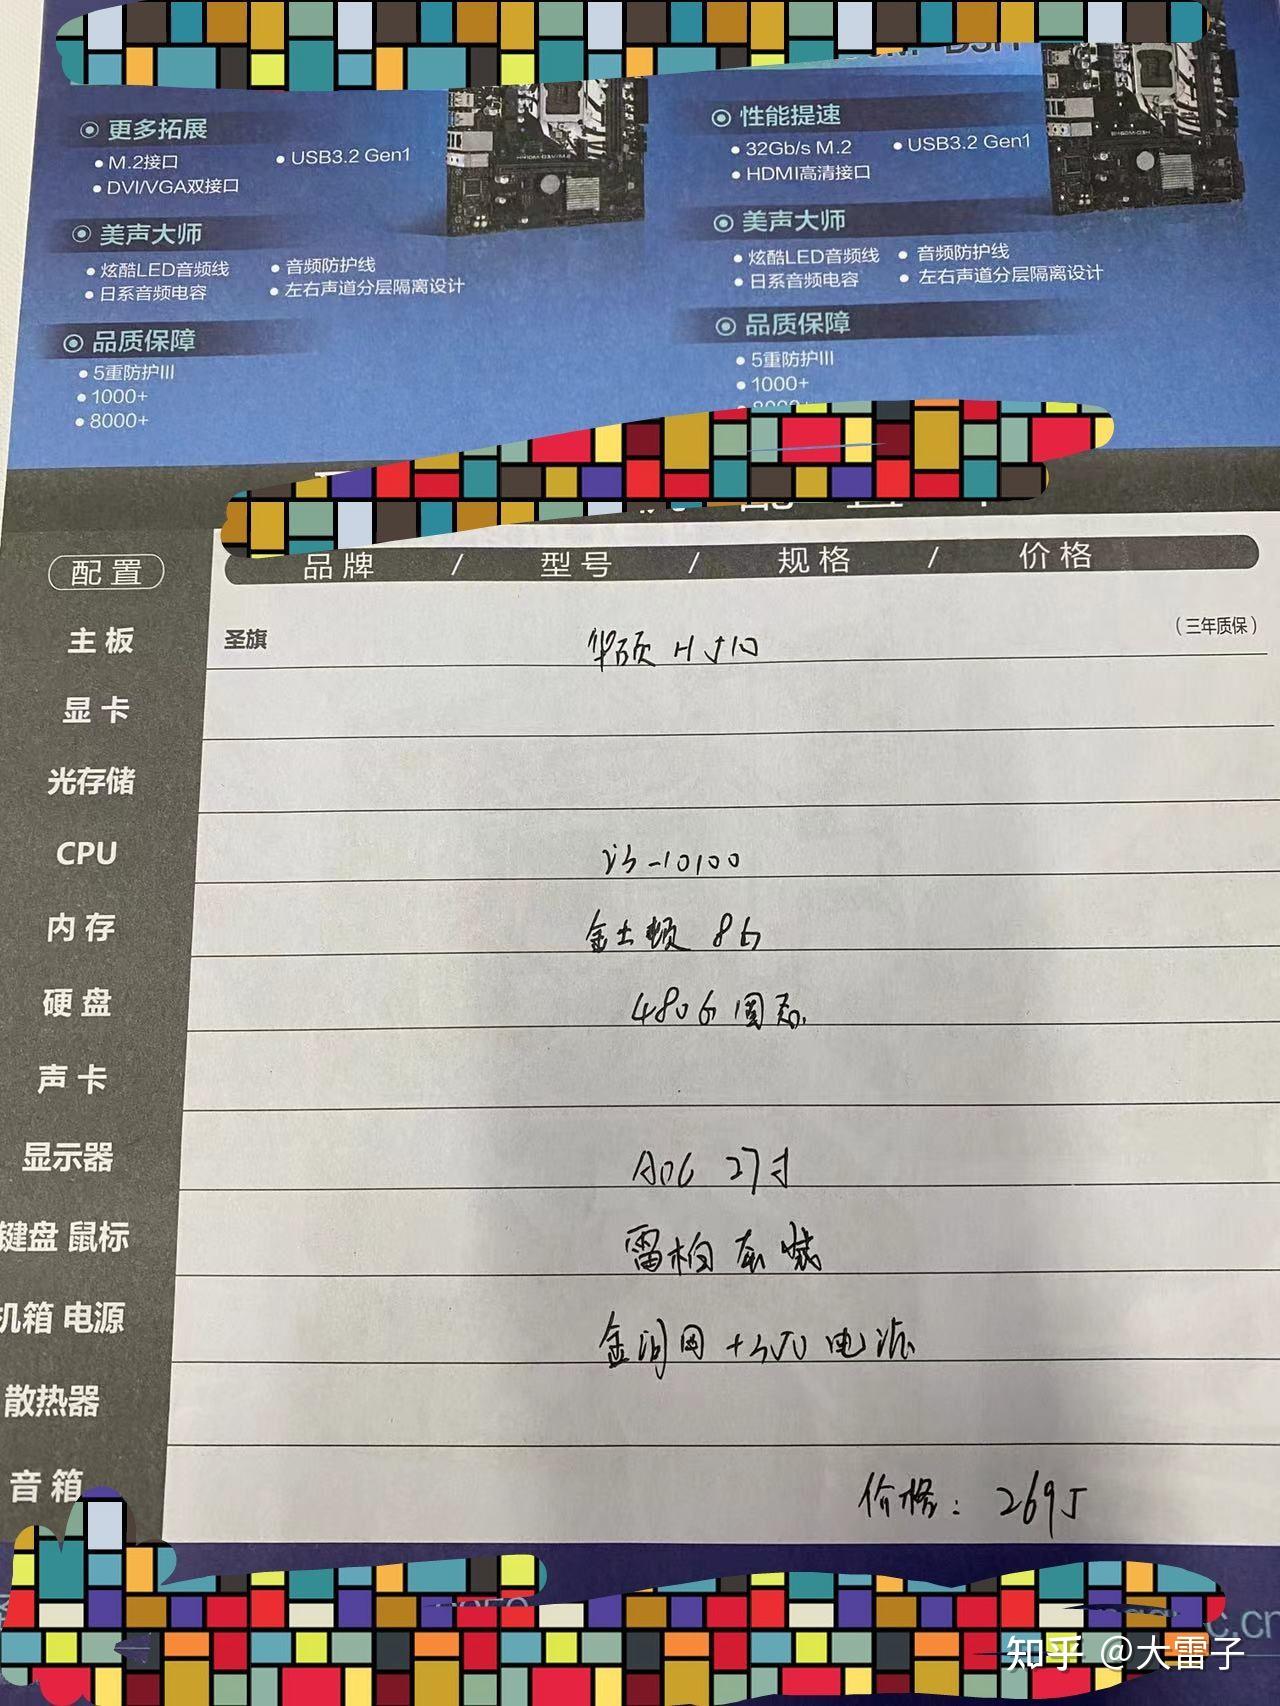 更多拓展
M.2接口
USB3.2 Gen1
DVI/VGA双接口
美声大师
炫酷LED音频线
音频防护线
日系音频电容
左右声道分层隔离设计
品质保障
5重防护III
1000+
8000+
性能提速
32Gb/s M.2
USB3.2 Gen1
HDMI高清接口
美声大师
炫酷LED音频线
音频防护线
日系音频电容
左右声道分层隔离设计
品质保障
5重防护III
1000+
配置 品牌 / 型号 / 规格 / 价格
主板 圣旗 华硕 H510 (三年质保)
显卡
光存储
CPU i3-10100
内存 金士顿 8G
硬盘 480G 固态
声卡
显示器 AOC 27寸
键盘 鼠标 雷柏 套装
机箱 电源 金河田 + 350 电源
散热器
音箱
价格: 2695
知乎 @大雷子